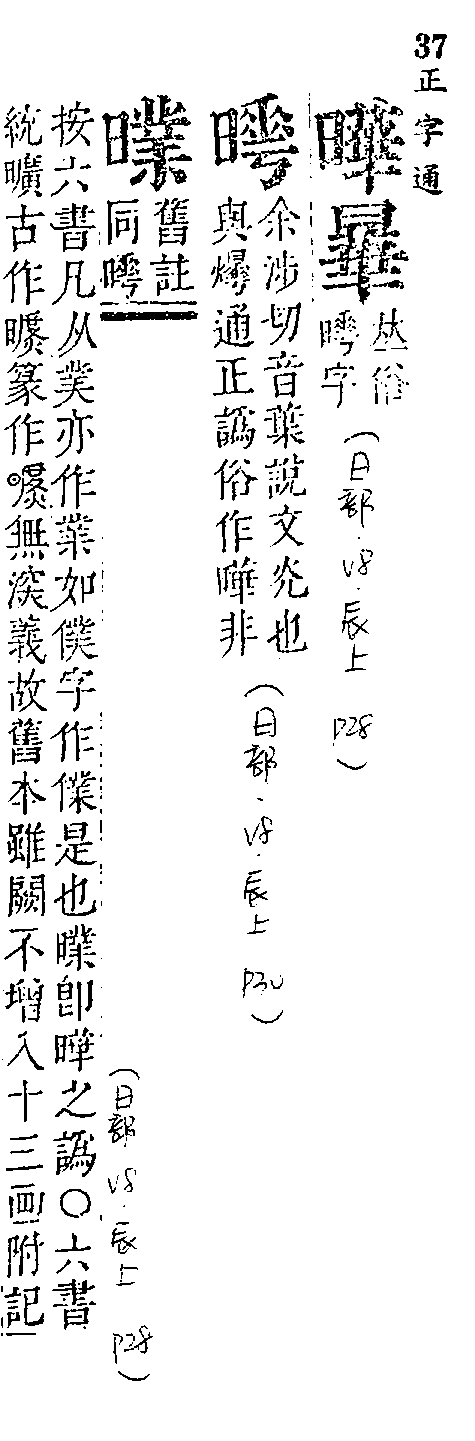 37 正字通
曄暈
丛俗
㬓字
(日部．V8．辰上 P28)
㬓
余涉切音葉說文光也
與爗通正譌俗作曄非
(日部．V8．辰上 P30)
㬥
舊註
同㬓
按六書凡从菐亦作業如僕字作㒒是也㬥卽曄之譌○六書
統曠古作㬥篆作無深義故舊本雖闕不增入十三畫附記
(日部 V8．辰上 P28)